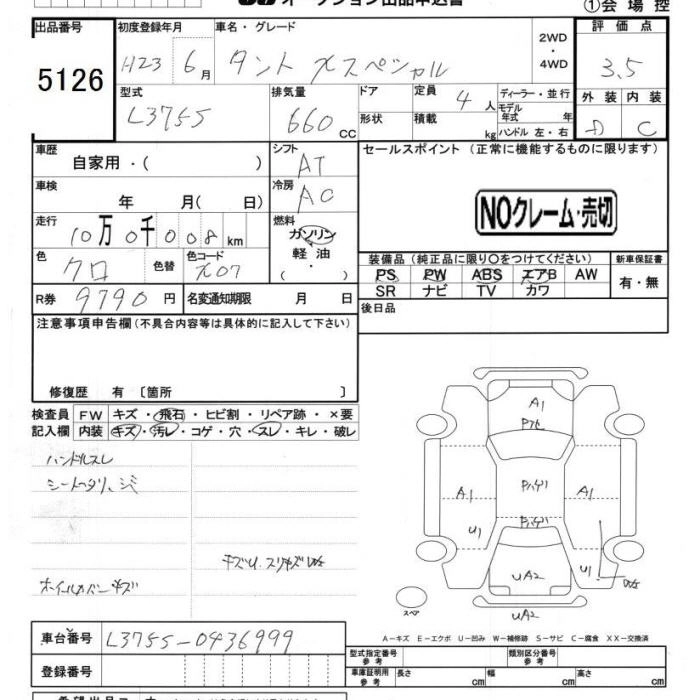 オークション出品申込書
①会場控
出品番号 5126
初度登録年月 H23 6月
車名・グレード タント Xスペシャル
2WD・4WD
評価点 3.5
型式 L375S
排気量 660 CC
ドア
形状
定員 4人
積載 kg
ディーラー・並行
モデル年式 年
ハンドル 左・右
外装 内装
D C
車歴 自家用・( )
シフト AT
セールスポイント(正常に機能するものに限ります)
車検 年 月( 日)
冷房 AC
NOクレーム・売切
走行 10万0千008km
燃料 ガソリン
軽油
( ・ )
色 クロ
色替
色コード X07
装備品(純正品に限り○をつけてください)
新車保証書
PS PW ABS エアB AW
有・無
SR ナビ TV カワ
R券 9790円
名変通知期限 月 日
後日品
注意事項申告欄(不具合内容等は具体的に記入して下さい)
修復歴 有 〔箇所 〕
検査員 FW キズ・飛石・ヒビ割・リペア跡・×要
記入欄 内装 キズ・汚レ・コゲ・穴・スレ・キレ・破レ
ハンドルスレ
シートヘタリ、シミ
キズU.スリキズ
ホイールカバーキズ
A1
A1 A1
U1 U1
UA2
スペア
UA2
A－キズ E－エクボ U－凹み W－補修跡 S－サビ C－腐食 XX－交換済
車台番号 L375S-0436999
登録番号
型式指定番号 参考
類別区分番号 参考
車庫証明用 参考 長さ cm 幅 cm 高さ cm